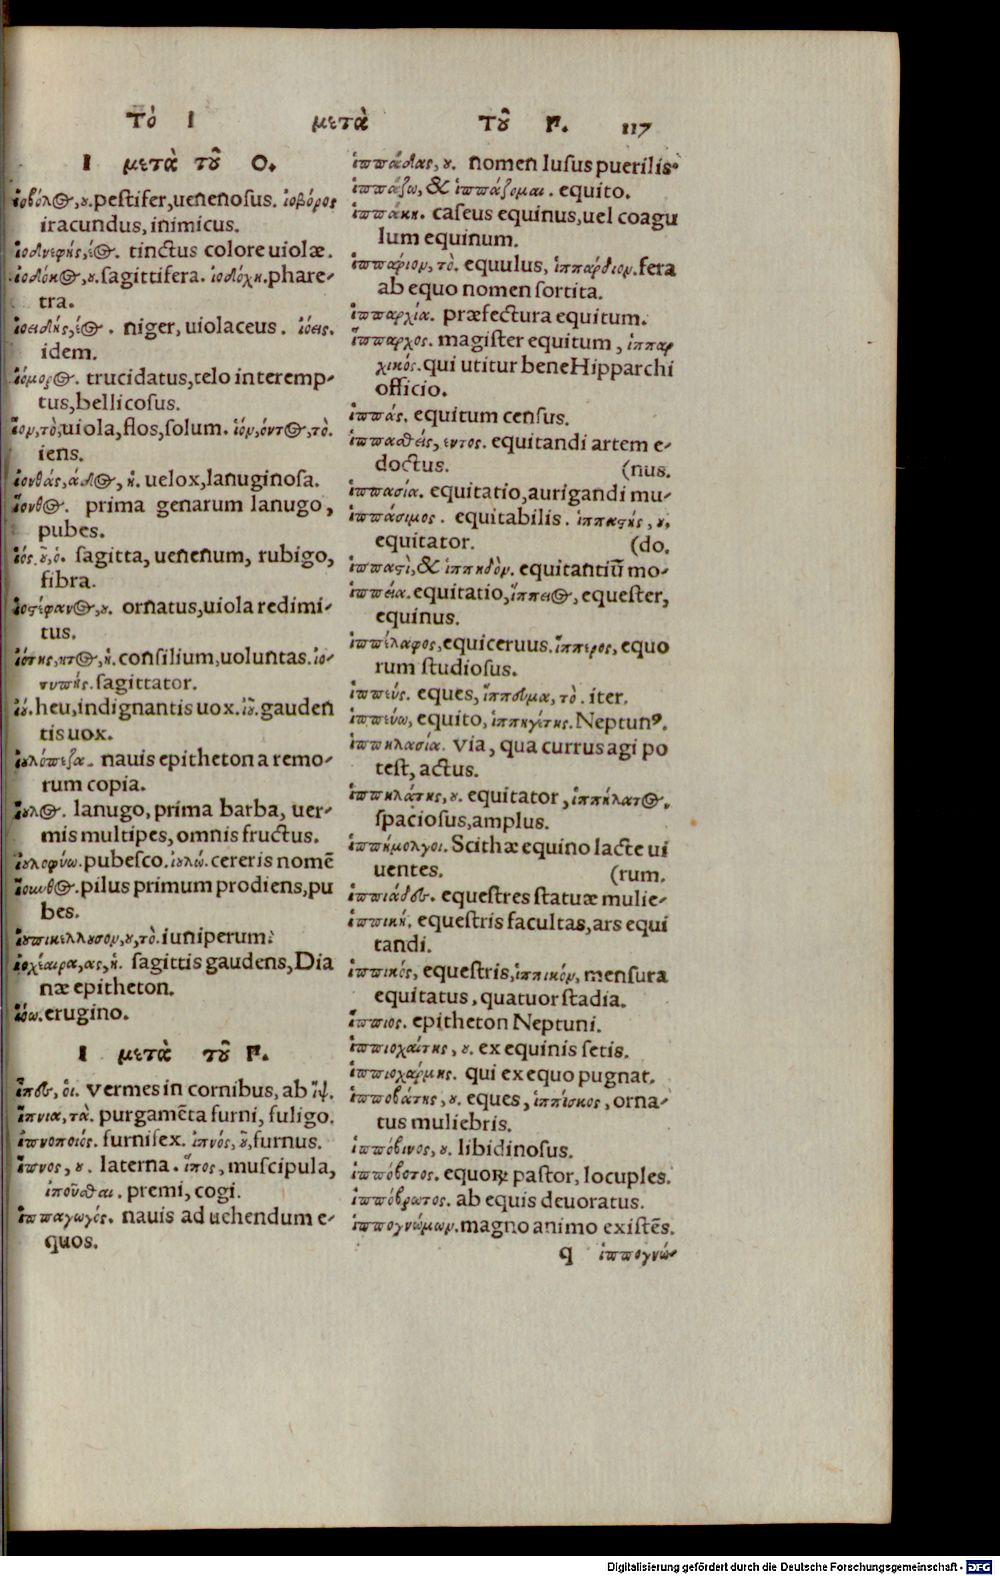 Τὸ Ι μετὰ τȣ͂ Π. 117
Ι μετὰ τȣ͂ Ο.
ἰοβόλος, ȣ. pestifer, uenenosus. ἰοβόρος
iracundus, inimicus.
ἰοδνεφὴς, έος. tinctus colore uiolæ.
ἰοδόκος, ȣ. sagittifera. ἰοδόχη. phare-
tra.
ἰοειδὴς, έος. niger, uiolaceus. ἰόεις.
idem.
ἰόμορος. trucidatus, telo interemp-
tus, bellicosus.
ἴον, τὸ, uiola, flos, solum. ἰόν, όντος, τὸ.
iens.
ἰονθάς, άδος, ἡ. uelox, lanuginosa.
ἴονθος. prima genarum lanugo,
pubes.
ἰός, ȣ͂, ὁ. sagitta, uenenum, rubigo,
fibra.
ἰοστέφανος, ȣ. ornatus, uiola redimi-
tus.
ἰότης, ητος, ἡ. consilium, uoluntas. ἰο-
τυπής. sagittator.
ἰȣ́. heu, indignantis uox. ἰȣ͂. gauden
tis uox.
ἰȣλόπεζα. nauis epitheton a remo-
rum copia.
ἴȣλος. lanugo, prima barba, uer-
mis multipes, omnis fructus.
ἰȣλοφύω. pubesco. ἰȣλώ. cereris nomē
pilus primum prodiens, pu
bes.
ȣ, τὸ. iuniperum.
ἰοχέαιρα, ας, ἡ. sagittis gaudens, Dia
næ epitheton.
ἰόω. erugino.
Ι μετὰ τȣ͂ Π.
ἶπες, οἱ. vermes in cornibus, ab ἴψ.
ἴπνια, τὰ. purgamēta furni, fuligo.
ἰπνοποιός. furnifex. ἰπνός, ȣ͂, furnus.
ἴπνος, ȣ. laterna. ἶπος, muscipula,
ἰποῦσθαι. premi, cogi.
ἱππαγωγός. nauis ad uehendum e-
quos.
ἱππάδας, ȣ. nomen lusus puerilis.
ἱππάζω, & ἱππάζομαι. equito.
ἱππάκη. caseus equinus, uel coagu
lum equinum.
ἱππάριον, τὸ. equulus, ἱππάρδιον. fera
ab equo nomen sortita.
ἱππαρχία. præfectura equitum.
ἵππαρχος. magister equitum, ἱππαρ
χικός. qui utitur bene Hipparchi
officio.
ἱππάς. equitum census.
ἱππασθείς, εντος. equitandi artem e-
doctus. (nus.
ἱππασία. equitatio, aurigandi mu-
ἱππάσιμος. equitabilis. ἱππαστής, ȣ,
equitator. (do.
ἱππαστὶ, & ἱππηδὸν. equitantiū mo-
ἱππεία. equitatio, ἵππειος, equester,
equinus.
ἱππέλαφος, equiceruus. ἵππερος, equo
rum studiosus.
ἱππεύς. eques, ἵππευμα, τὸ. iter.
ἱππεύω, equito, ἱππηγέτης. Neptunꝰ.
ἱππηλασία. via, qua currus agi po
test, actus.
ἱππηλάτης, ȣ. equitator, ἱππήλατος,
spaciosus, amplus.
ἱππήμολγοι. Scithæ equino lacte ui
uentes. (rum.
ἱππιάδες. equestres statuæ mulie-
ἱππική. equestris facultas, ars equi
tandi.
ἱππικός, equestris, ἱππικόν, mensura
equitatus, quatuor stadia.
ἵππιος. epitheton Neptuni.
ἱππιοχαίτης, ȣ. ex equinis setis.
ἱππιοχάρμης. qui ex equo pugnat.
ἱπποβάτης, ȣ. eques, ἱππίσκος, orna-
tus muliebris.
ἱππόβινος, ȣ. libidinosus.
ἱππόβοτος. equoꝝ pastor, locuples.
ἱππόβρωτος. ab equis deuoratus.
ἱππογνώμων. magno animo existēs.
q ἱππογνώ-
Digitalisierung gefördert durch die Deutsche Forschungsgemeinschaft - DFG